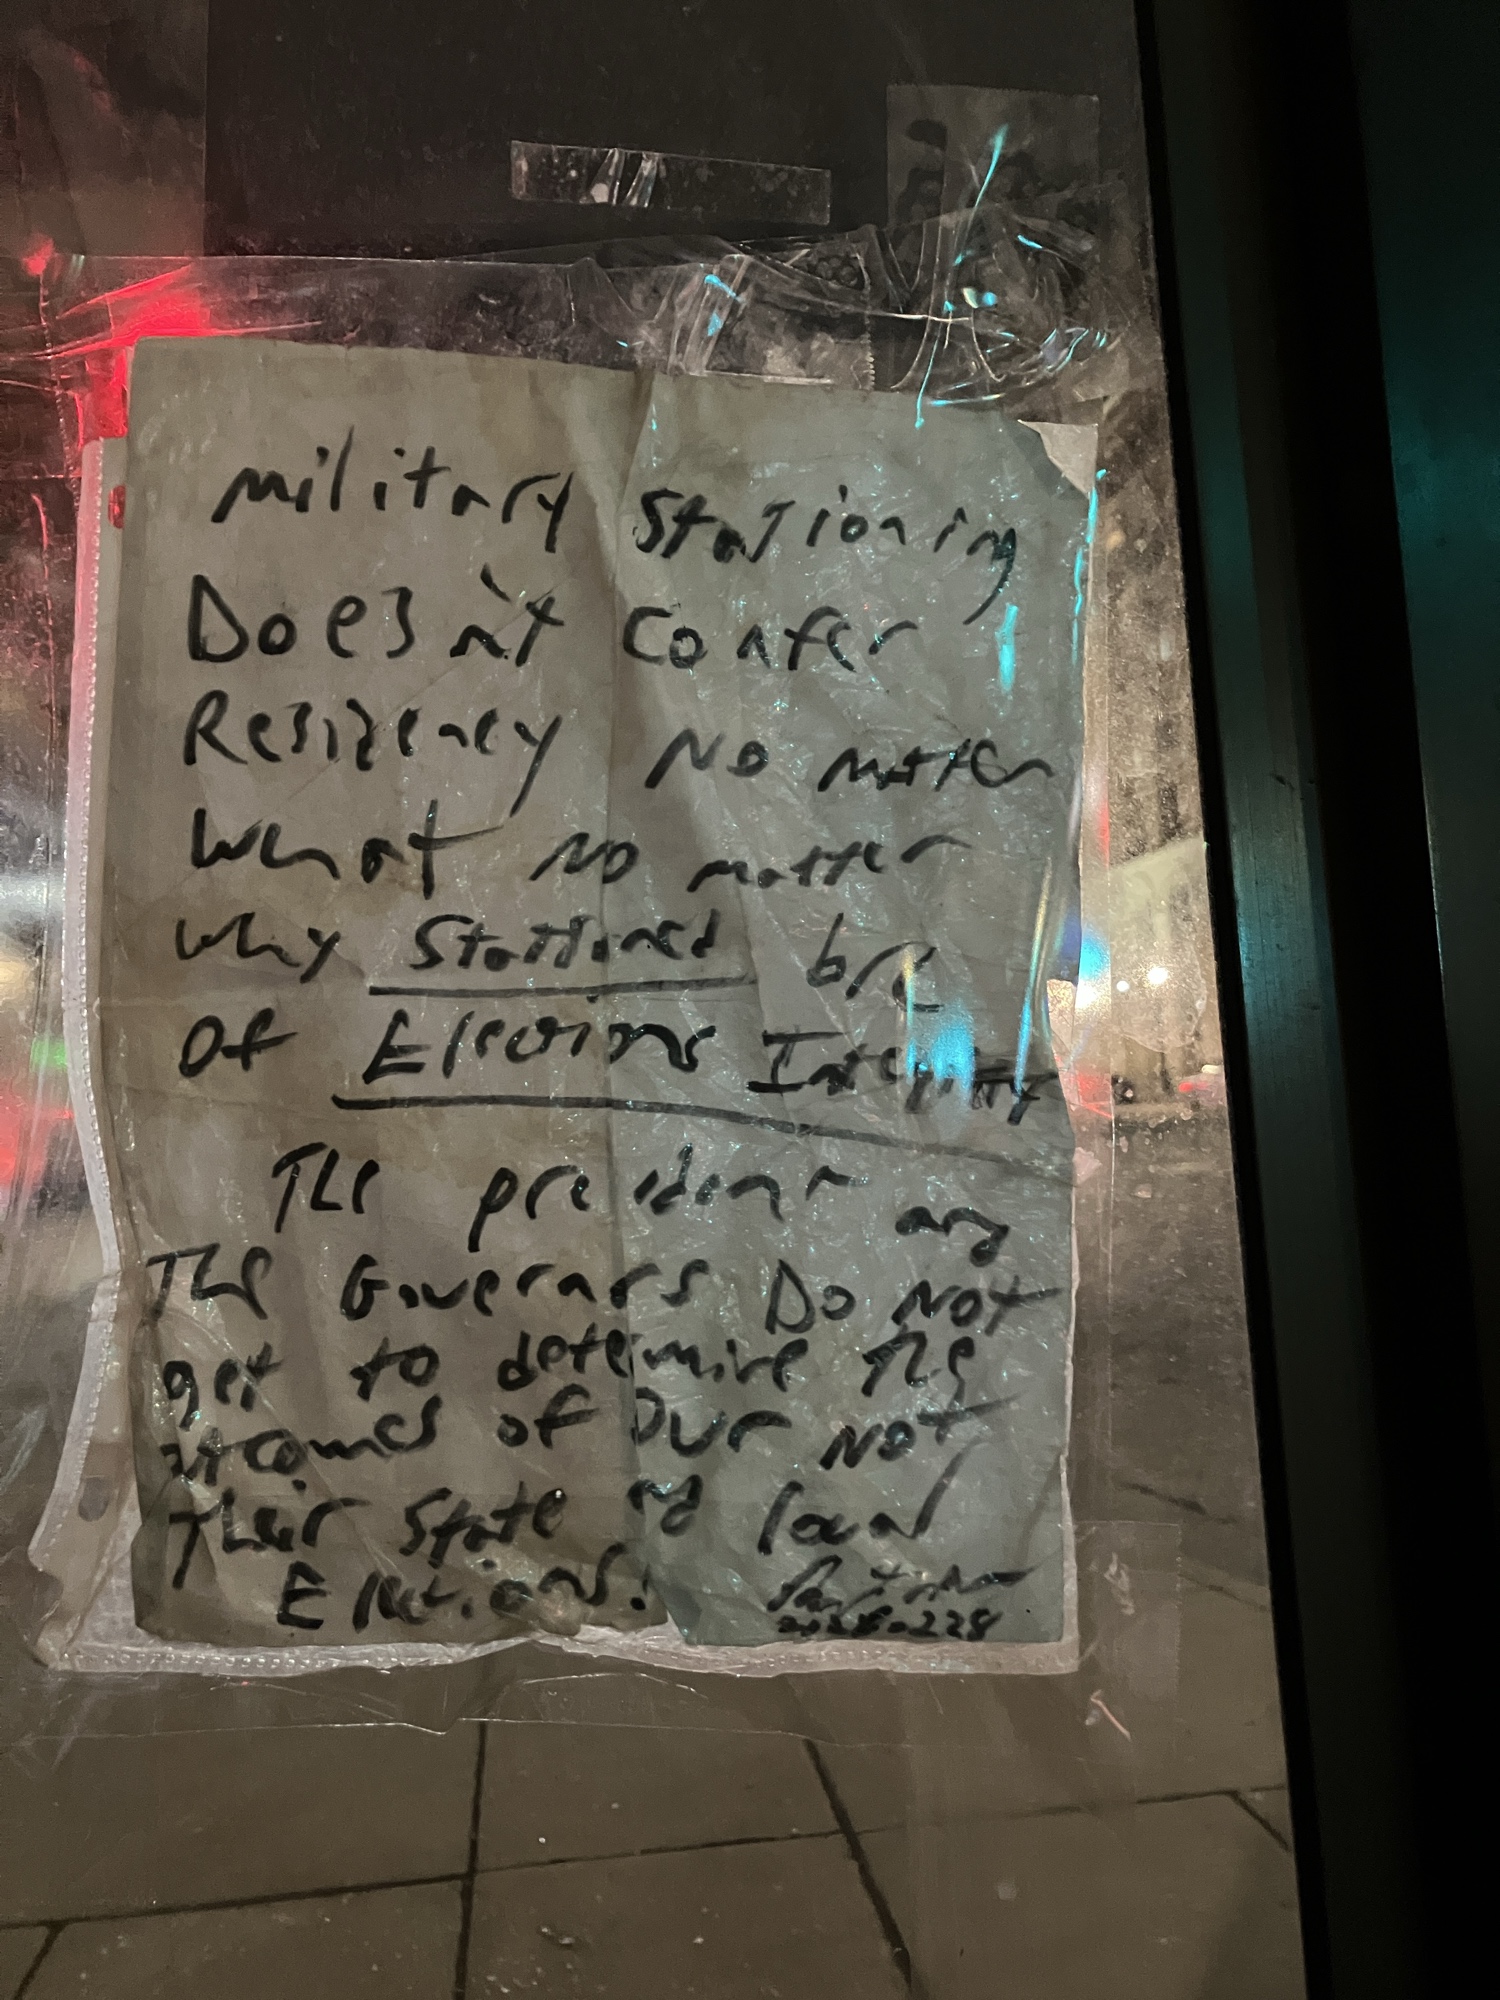 military Stationing
Doesn't Confer
Residency No matter
What No matter
Why Stationed b/c
Of Elections Integrity
The president and
The Governors Do Not
get to determine the
outcomes of Our Not
Their State and local
Elections!